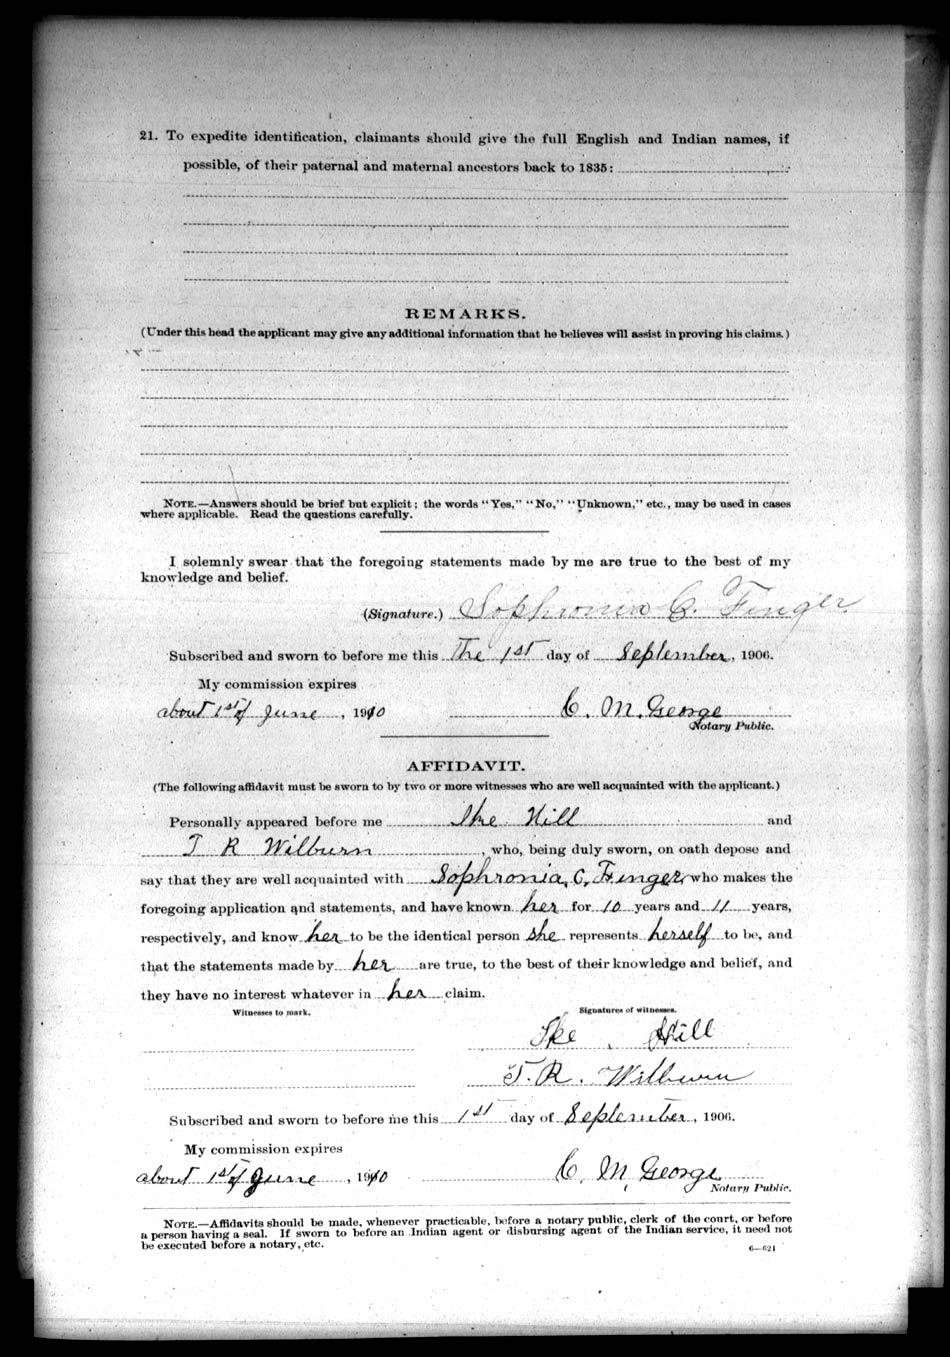 21. To expedite identification, claimants should give the full English and Indian names, if
possible, of their paternal and maternal ancestors back to 1835:
REMARKS.
(Under this head the applicant may give any additional information that he believes will assist in proving his claims.)
NOTE.—Answers should be brief but explicit; the words "Yes," "No," "Unknown," etc., may be used in cases
where applicable. Read the questions carefully.
I solemnly swear that the foregoing statements made by me are true to the best of my
knowledge and belief.
(Signature.) Sophronia C. Finger
Subscribed and sworn to before me this The 1st day of September, 1906.
My commission expires
about 1st of June, 1910 C. M. George
Notary Public.
AFFIDAVIT.
(The following affidavit must be sworn to by two or more witnesses who are well acquainted with the applicant.)
Personally appeared before me Ike Hill and
T R Wilburn, who, being duly sworn, on oath depose and
say that they are well acquainted with Sophronia, C, Finger, who makes the
foregoing application and statements, and have known her for 10 years and 11 years,
respectively, and know her to be the identical person she represents herself to be, and
that the statements made by her are true, to the best of their knowledge and belief, and
they have no interest whatever in her claim.
Witnesses to mark. Signatures of witnesses.
Ike Hill
T. R. Wilburn
Subscribed and sworn to before me this 1st day of September, 1906.
My commission expires
about 1st of June, 1910 C. M. George
Notary Public.
NOTE.—Affidavits should be made, whenever practicable, before a notary public, clerk of the court, or before
a person having a seal. If sworn to before an Indian agent or disbursing agent of the Indian service, it need not
be executed before a notary, etc.
6—621